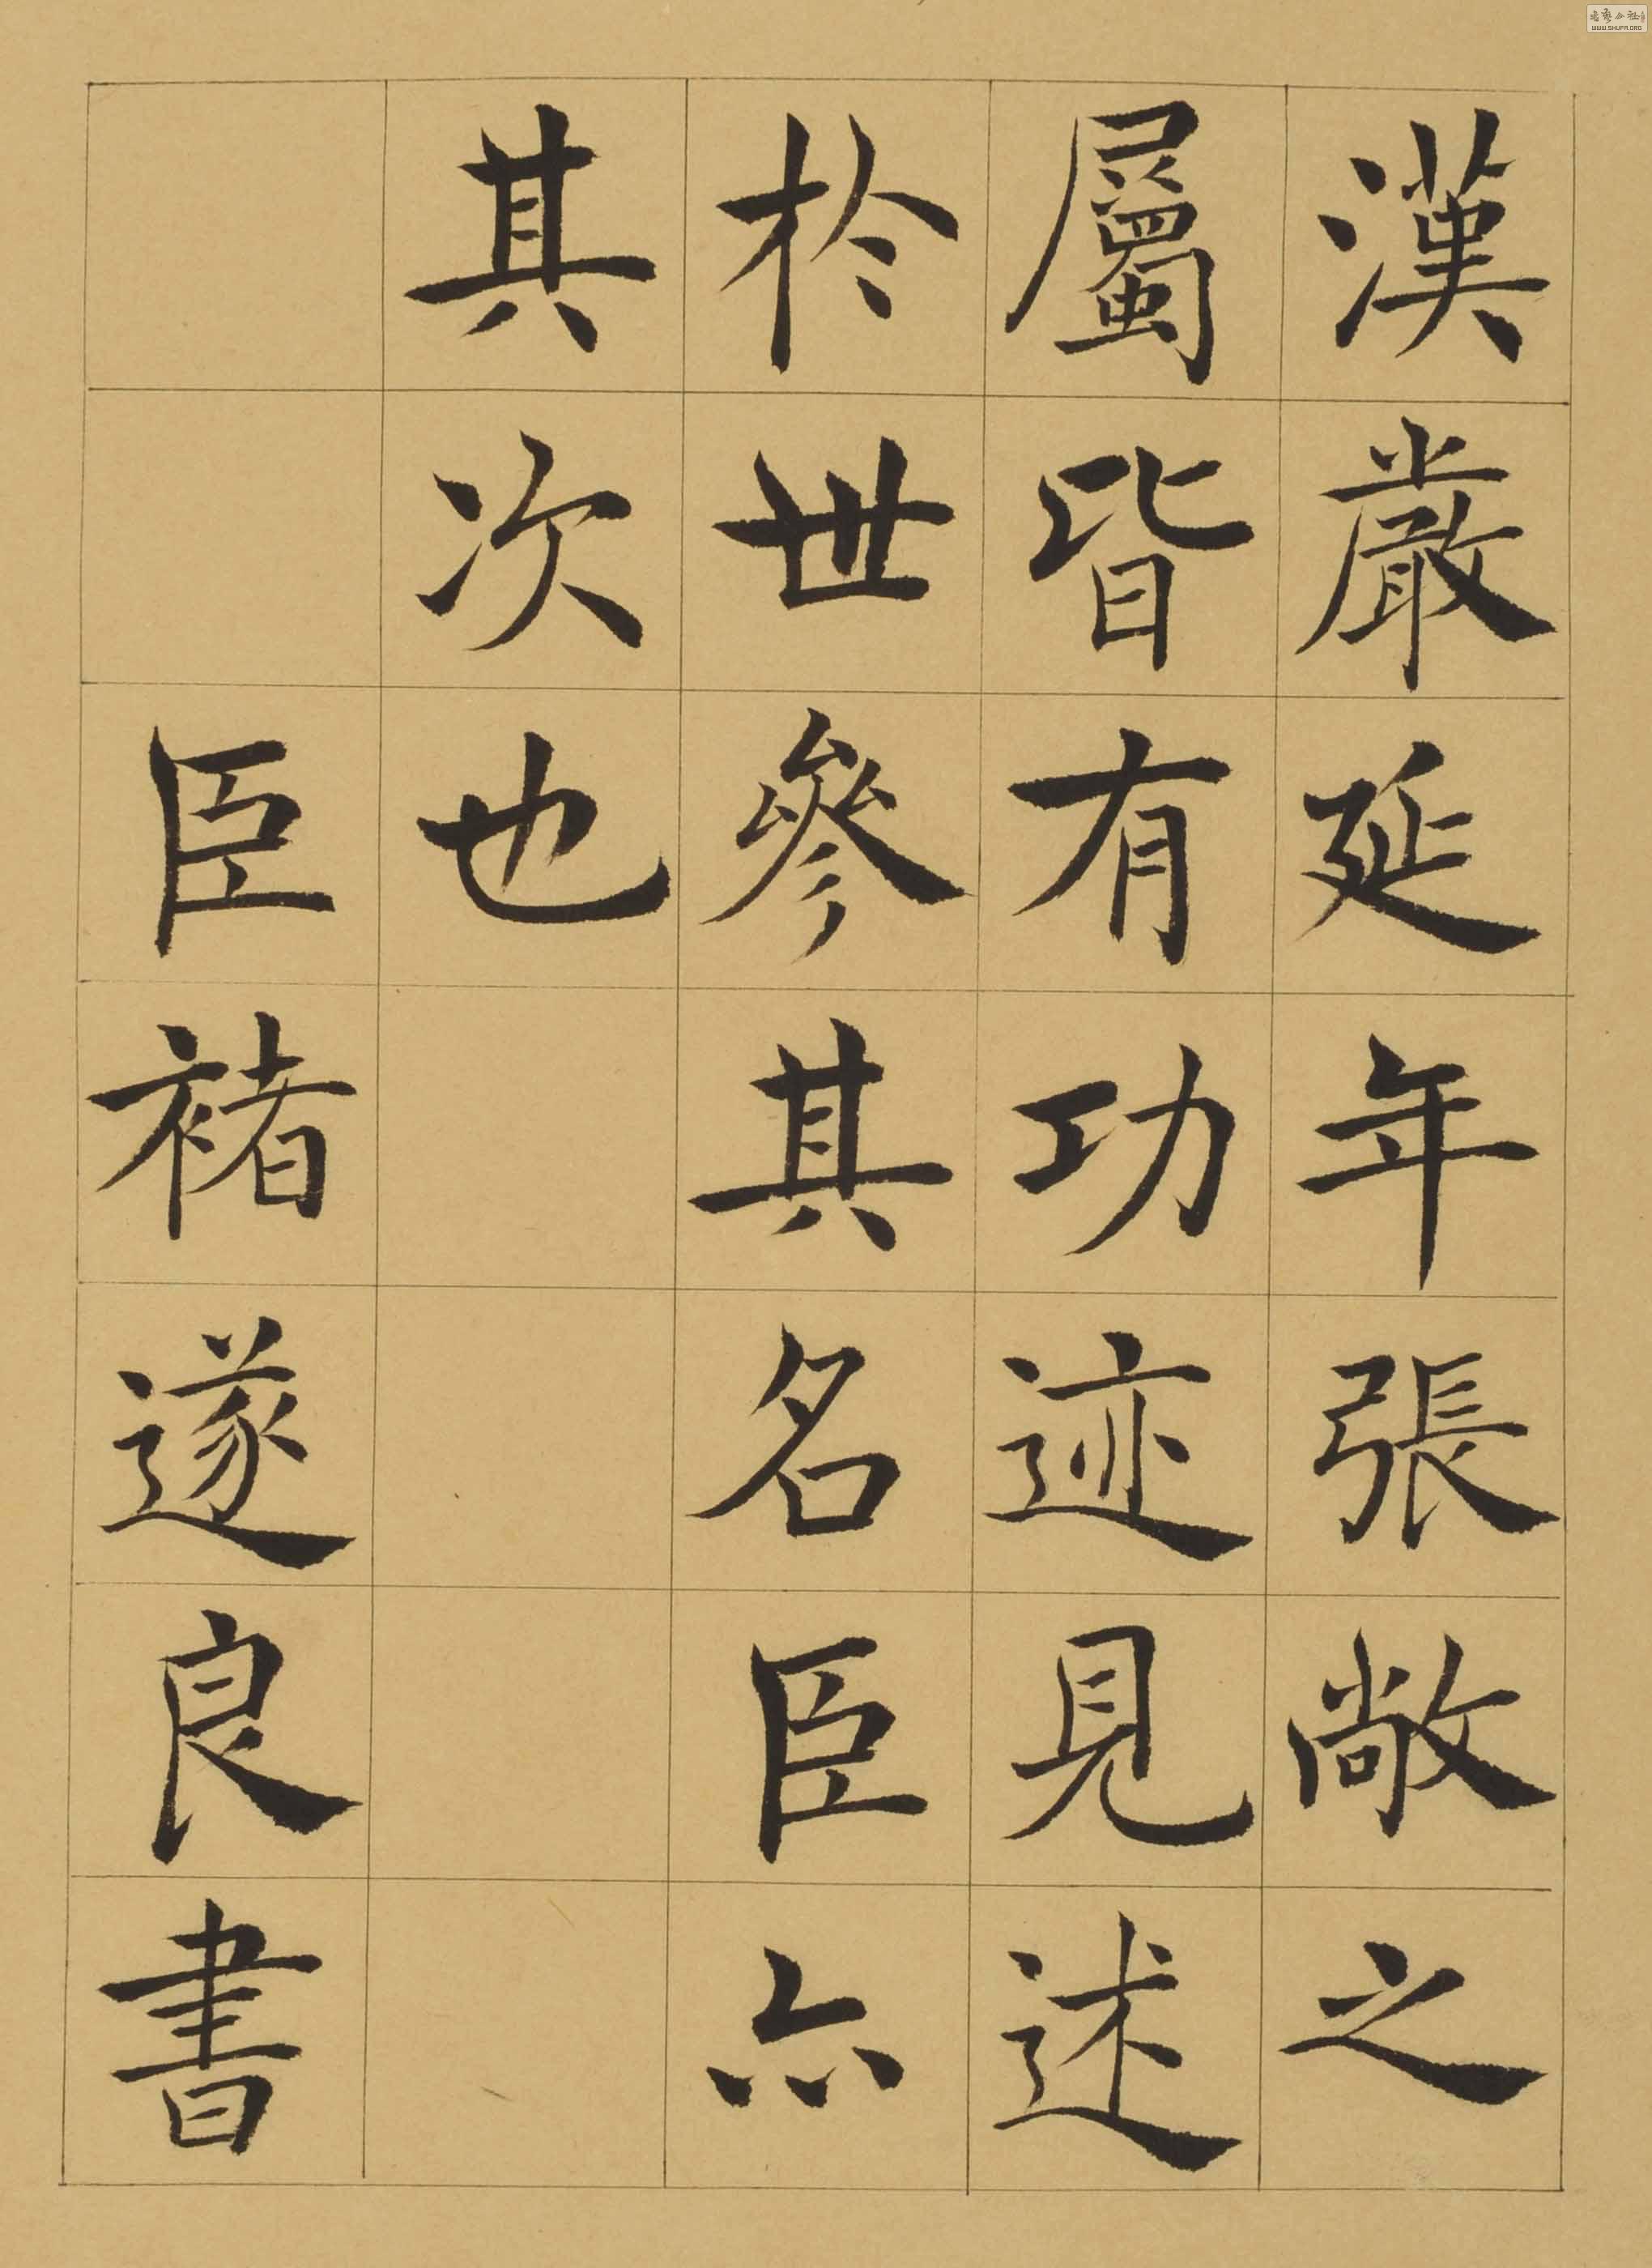 漢嚴延年張敞之
屬皆有功迹見述
於世參其名臣亦
其次也
臣褚遂良書
WWW.SHUFA.ORG